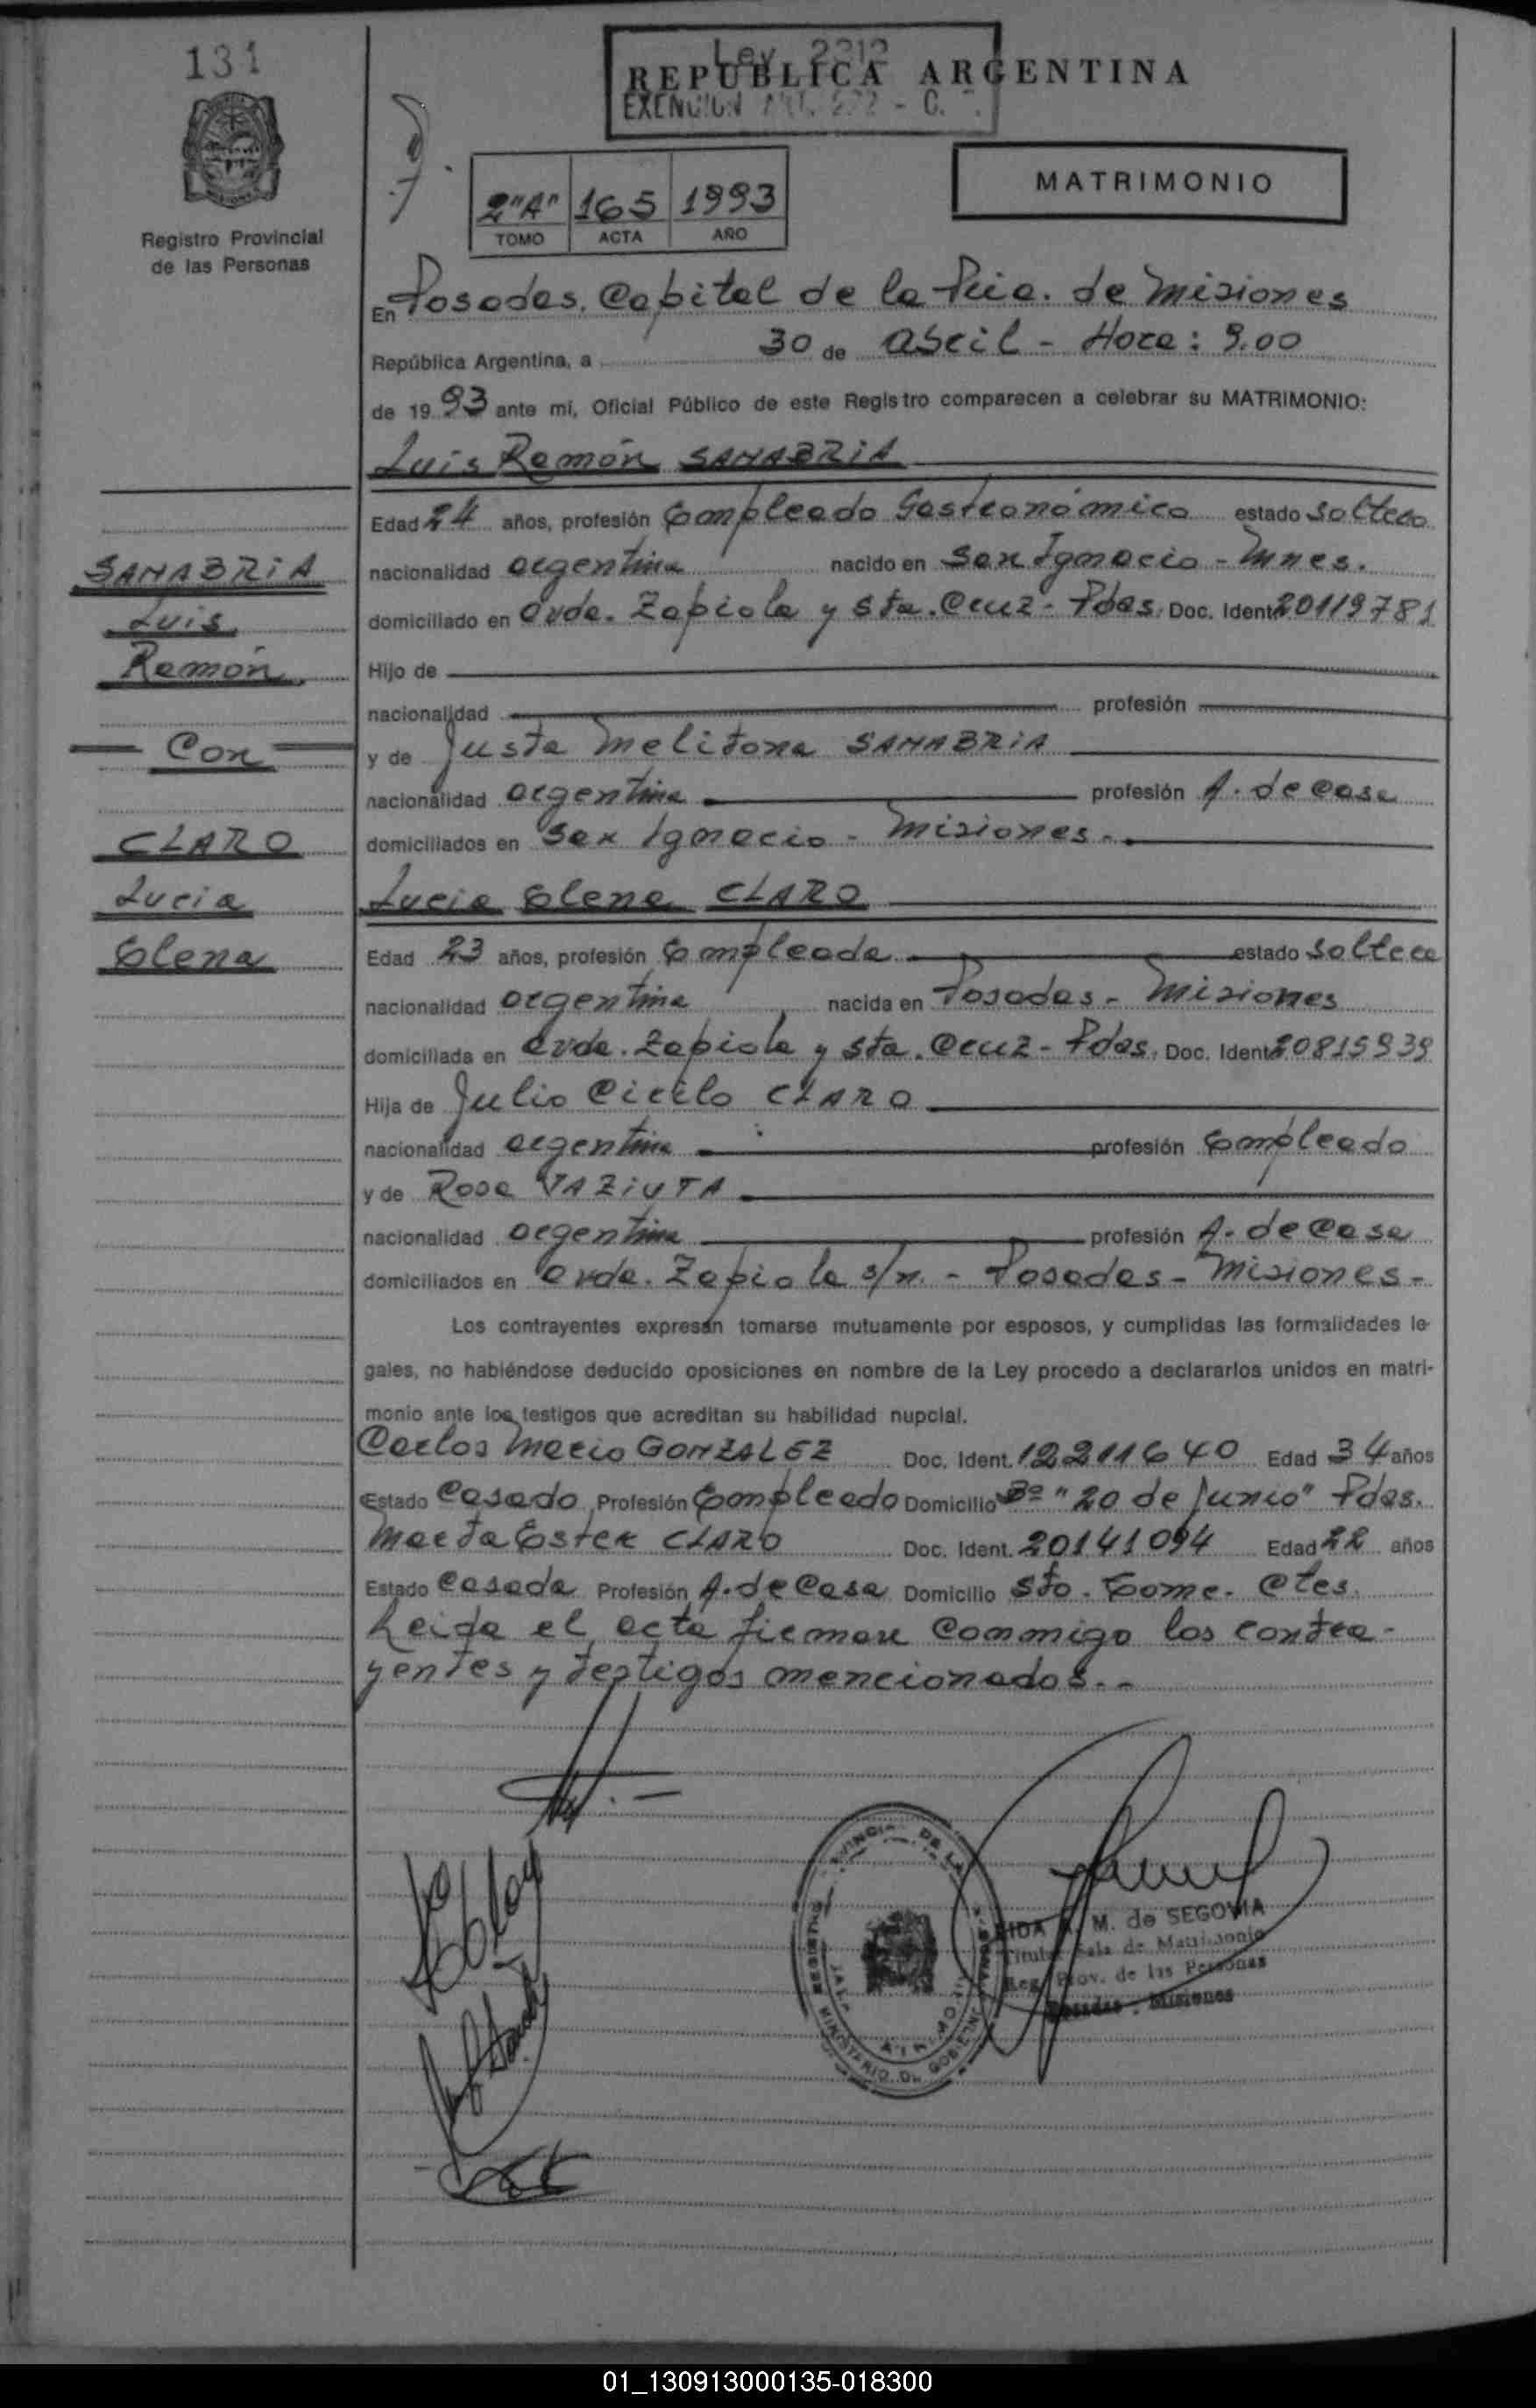 131
Ley 2212
REPUBLICA ARGENTINA
EXENCION ART.
MATRIMONIO
2"A" 165 1993
TOMO ACTA AÑO
Registro Provincial
de las Personas
En Posadas, Capital de la Pcia. de Misiones
República Argentina, a 30 de Abril - Hora: 9.00
de 1993 ante mí, Oficial Público de este Registro comparecen a celebrar su MATRIMONIO:
Luis Ramón SANABRIA
Edad 24 años, profesión Empleado Gastronómico estado soltero
nacionalidad argentina nacido en San Ignacio - Mnes.
domiciliado en Avda. Zapiola y Sta. Cruz - Pdas. Doc. Ident. 20119781
Hijo de
nacionalidad profesión
y de Justa Melitona SANABRIA
nacionalidad argentina profesión A. de Casa
domiciliados en San Ignacio - Misiones.-
SANABRIA
Luis
Ramón
Con
CLARO
Lucia
Elena
Lucia Elena CLARO
Edad 23 años, profesión Empleada estado soltera
nacionalidad argentina nacida en Posadas - Misiones
domiciliada en Avda. Zapiola y Sta. Cruz - Pdas. Doc. Ident. 20815939
Hija de Julio Cirilo CLARO
nacionalidad argentina profesión Empleado
y de Rosa TAZIUTA
nacionalidad argentina profesión A. de Casa
domiciliados en Avda. Zapiola s/n. - Posadas - Misiones -
Los contrayentes expresan tomarse mutuamente por esposos, y cumplidas las formalidades le-
gales, no habiéndose deducido oposiciones en nombre de la Ley procedo a declararlos unidos en matri-
monio ante los testigos que acreditan su habilidad nupcial.
Carlos Mario GONZALEZ Doc. Ident. 12211640 Edad 34 años
Estado Casado Profesión Empleado Domicilio Bº "20 de Junio" Pdas.
Marta Ester CLARO Doc. Ident. 20141094 Edad 22 años
Estado Casada Profesión A. de Casa Domicilio Sto. Tome - Ctes.
Leida el acta firman conmigo los contra-
yentes y testigos mencionados.-
M. de SEGOVIA
Titular Sala de Matrimonio
Reg. Prov. de las Personas
Posadas - Misiones
MINISTERIO DE GOBIERNO
01_130913000135-018300